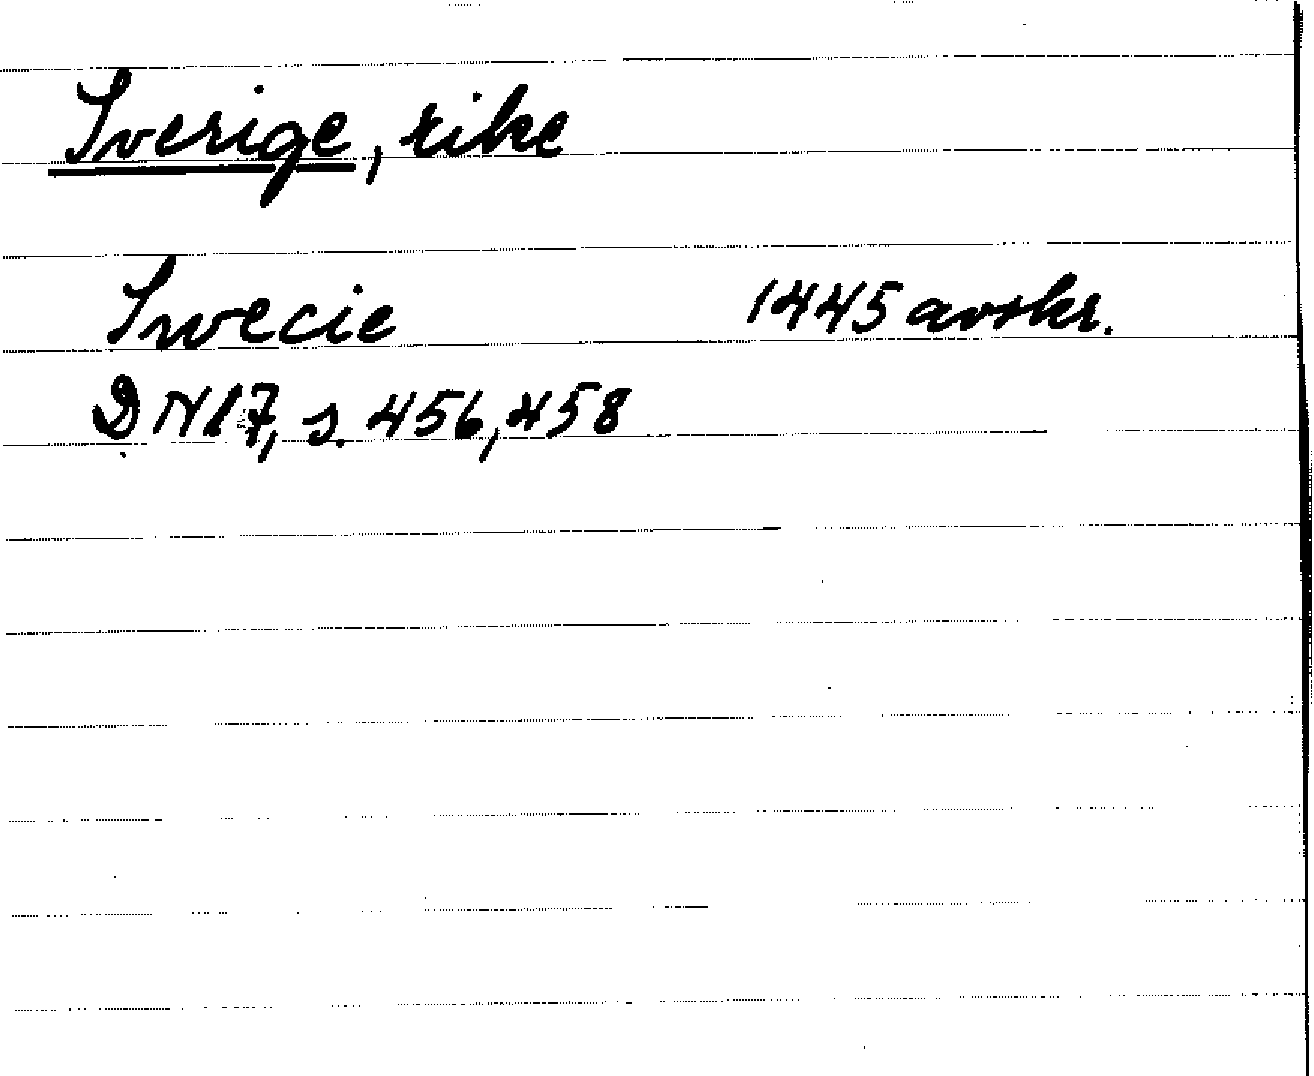 Sverige, rike
Swecie 1445 avskr.
DN 17, s. 456, 458